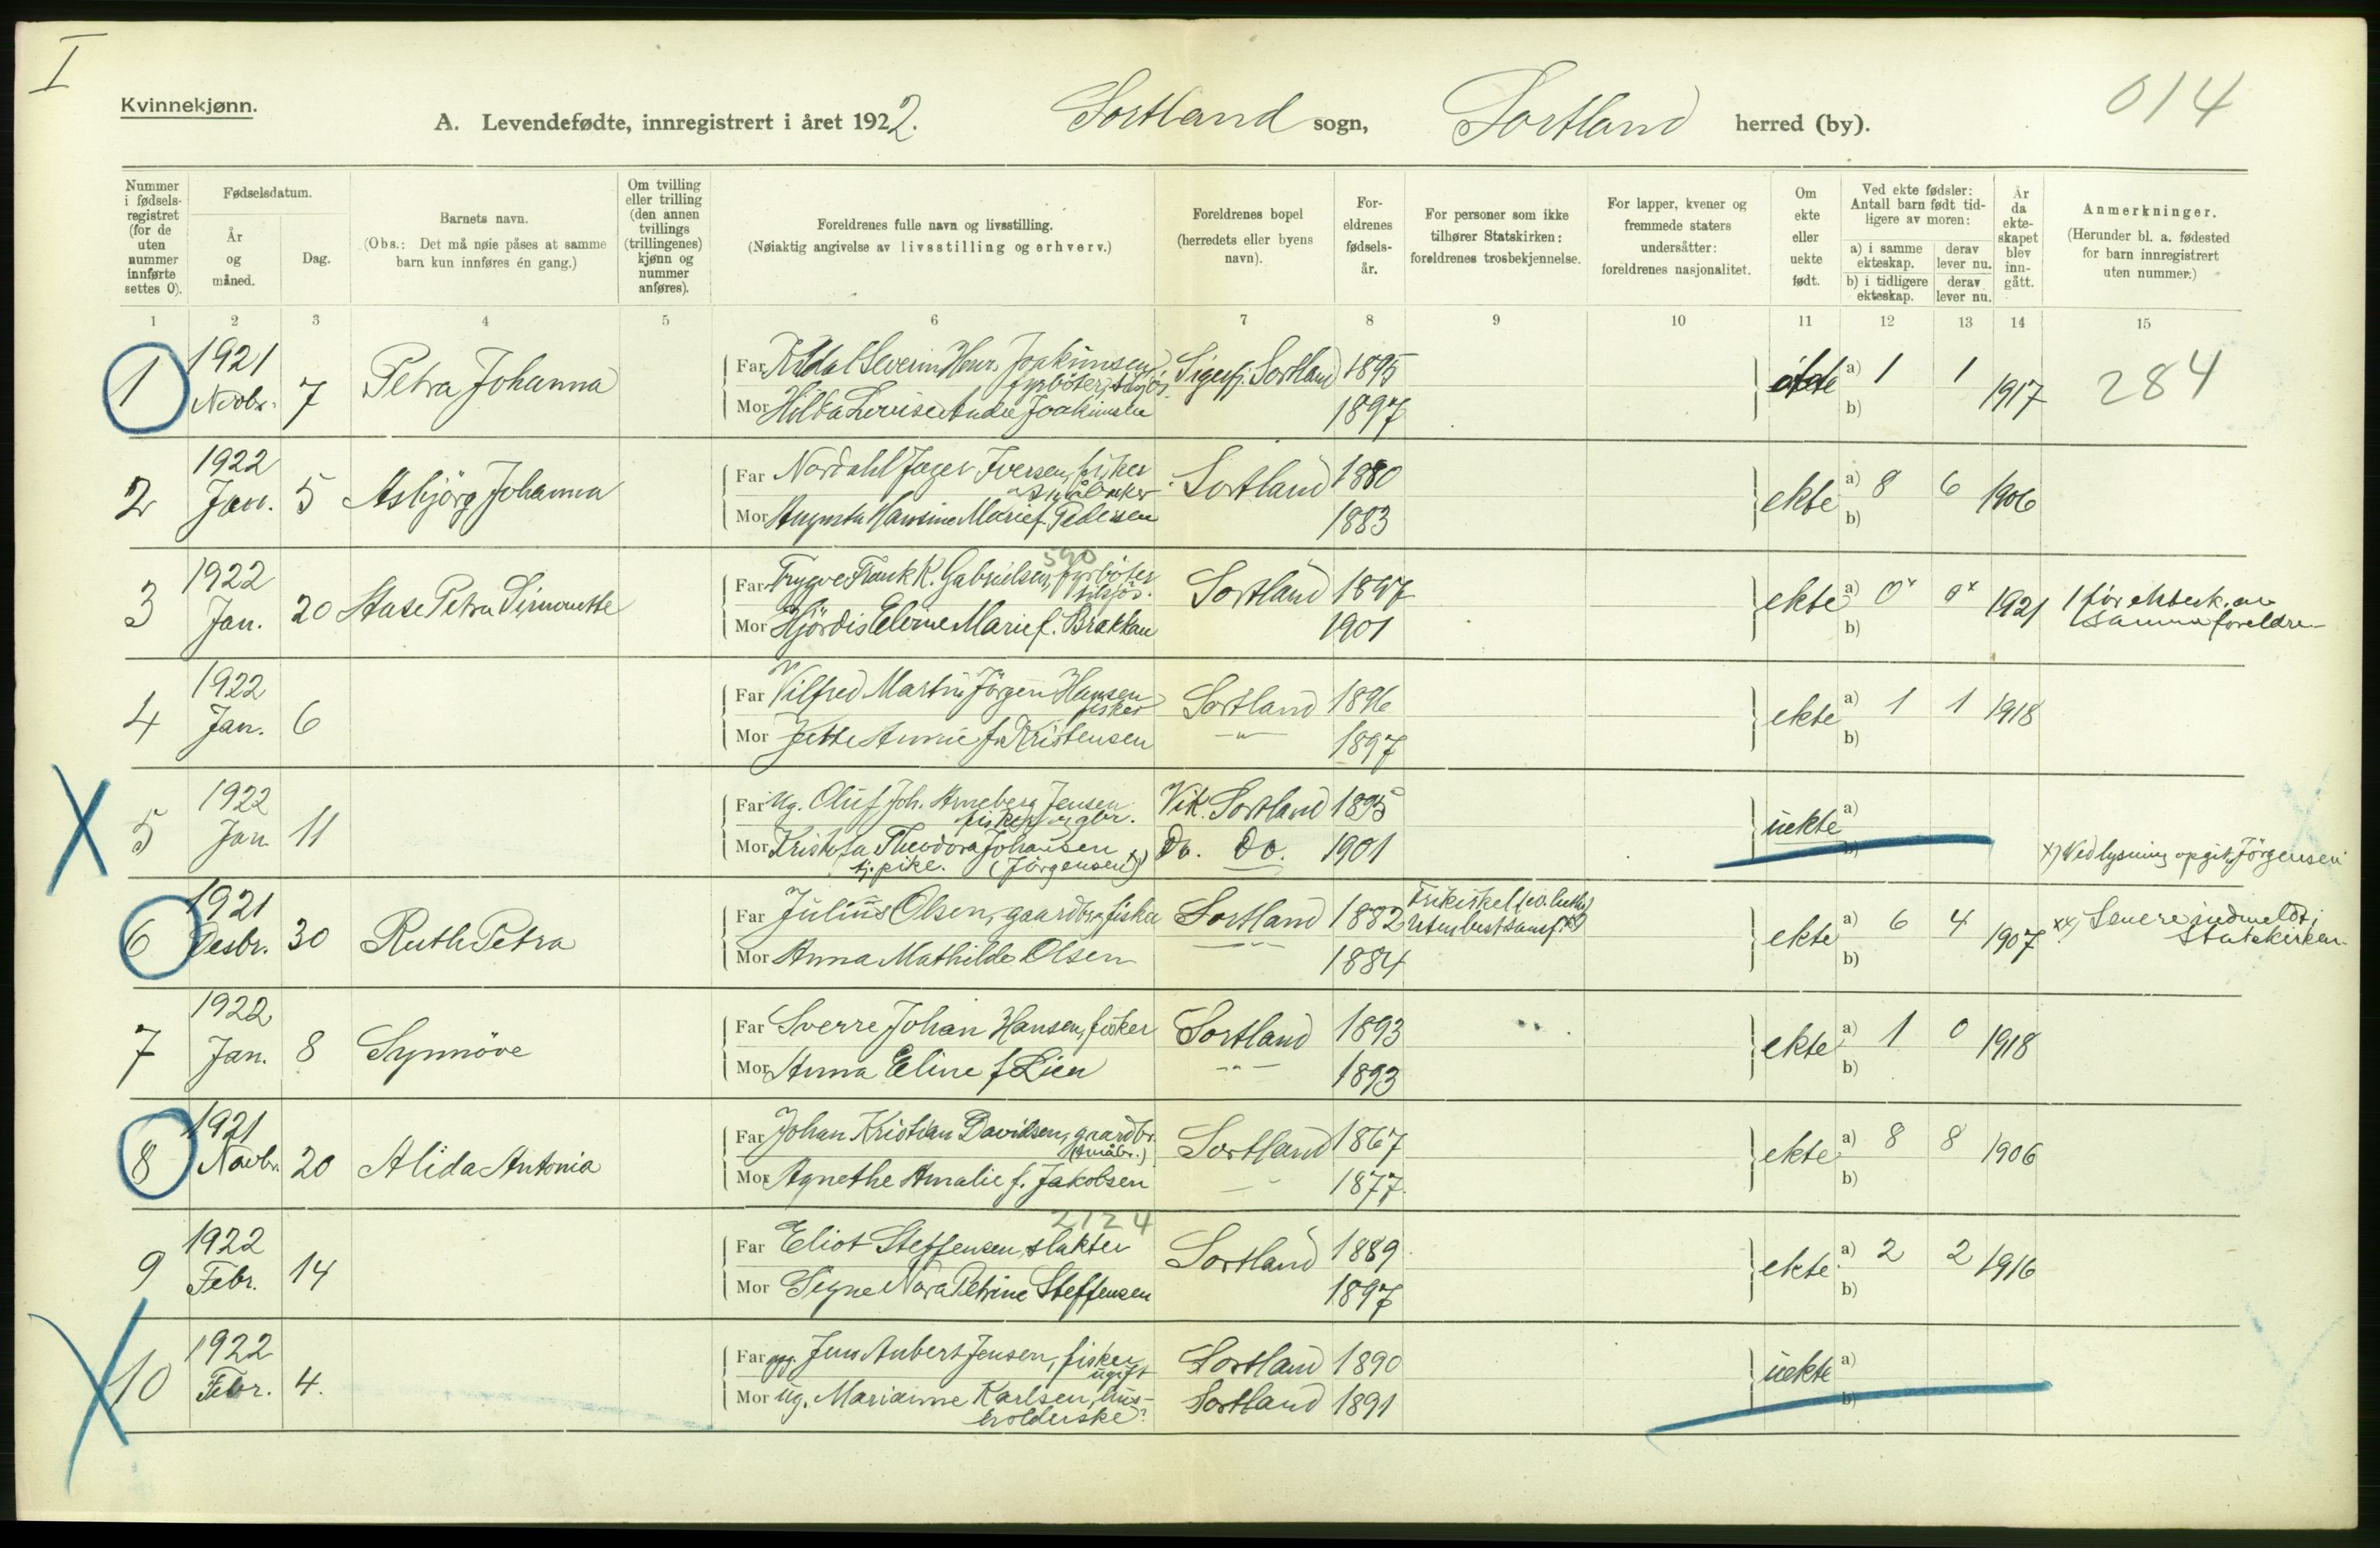 I
Kvinnekjønn.
A. Levendefødte, innregistrert i året 1922.
Sortland sogn, Sortland herred (by).
014
Nummer i fødsels-registret (for de uten nummer innførte settes 0).
Fødselsdatum.
År og måned.
Dag.
Barnets navn.
(Obs.: Det må nøie påses at samme barn kun innføres én gang.)
Om tvilling eller trilling (den annen tvillings (trillingenes) kjønn og nummer anføres).
Foreldrenes fulle navn og livsstilling.
(Nøiaktig angivelse av livsstilling og erhverv.)
Foreldrenes bopel (herredets eller byens navn).
For-eldrenes fødsels-år.
For personer som ikke tilhører Statskirken: foreldrenes trosbekjennelse.
For lapper, kvener og fremmede staters undersåtter: foreldrenes nasjonalitet.
Om ekte eller uekte født.
Ved ekte fødsler: Antall barn født tid-ligere av moren:
a) i samme ekteskap. derav lever nu.
b) i tidligere ekteskap. derav lever nu.
År da ekte-skapet blev inn-gått.
Anmerkninger.
(Herunder bl. a. fødested for barn innregistrert uten nummer.)
1 2 3 4 5 6 7 8 9 10 11 12 13 14 15
1 1921 Novbr. 7 Petra Johanna
Far Severin Joakimsen, fyrböter Sortland 1895
Mor Hilda Lovise Joakimsen 1897
ekte a) 1 1 1917 284
b)
2 1922 Jan. 5 Asbjörg Johanna
Far Nordahl Jager Iversen, fisker Sortland 1880
småbruker
Mor Augusta Hansine Marie f. Pedersen 1883
ekte a) 8 6 1906
b)
590
3 1922 Jan. 20 Aase Petra Simonette
Far Trygve Frank K. Gabrielsen, fyrböter Sortland 1897
tilsjös.
Mor Hjördis Elvine Marie f. Brekkan 1901
ekte a) 0x 0x 1921 1 för ektesk. av
b) samme foreldre
4 1922 Jan. 6
Far Vilfred Martin Jörgen Hansen Sortland 1896
fisker
Mor Jette Annie f. Kristensen -"- 1897
ekte a) 1 1 1918
b)
5 1922 Jan. 11
Far Ug. Oluf Joh. Arneberg Jensen Vik. Sortland 1895
fisker
Mor Theodora Johansen x) Do. Do. 1901
tj. pike. (Jörgensen)
uekte a)
b)
x) Ved lysning opgit Jörgensen
6 1921 Desbr. 30 Ruth Petra
Far Julius Olsen, gaardbr. fisker Sortland 1882
Mor Anna Mathilde Olsen -"- 1884
ekte a) 6 4 1907 xx) Senere indmeldt i
b) Statskirken
7 1922 Jan. 8 Synnöve
Far Sverre Johan Hansen, fisker Sortland 1893
Mor Anna Eline f. Lien -"- 1893
ekte a) 1 0 1918
b)
8 1921 Novbr. 20 Alida Antonia
Far Johan Kristian Davidsen, gaardbr. Sortland 1867
(småbr.)
Mor Agnethe Amalie f. Jakobsen -"- 1877
ekte a) 8 8 1906
b)
2124
9 1922 Febr. 14
Far Eliot Steffensen, slakter Sortland 1889
Mor Signe Nora Petrine Steffensen 1897
ekte a) 2 2 1916
b)
10 1922 Febr. 4.
Far Jens Anbert Jensen, fisker Sortland 1890
ugift
Mor ug. Marianne Karlsen, hus- Sortland 1891
holderske
uekte a)
b)